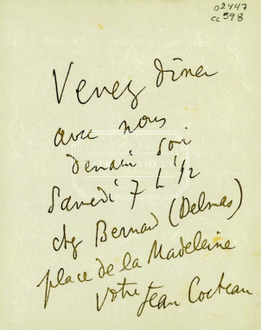 02447
cc598
Venez dîner
avec nous
demain soir
Samedi 7 h 1/2
chez Bernard (Delmas)
place de la Madeleine
votre Jean Cocteau